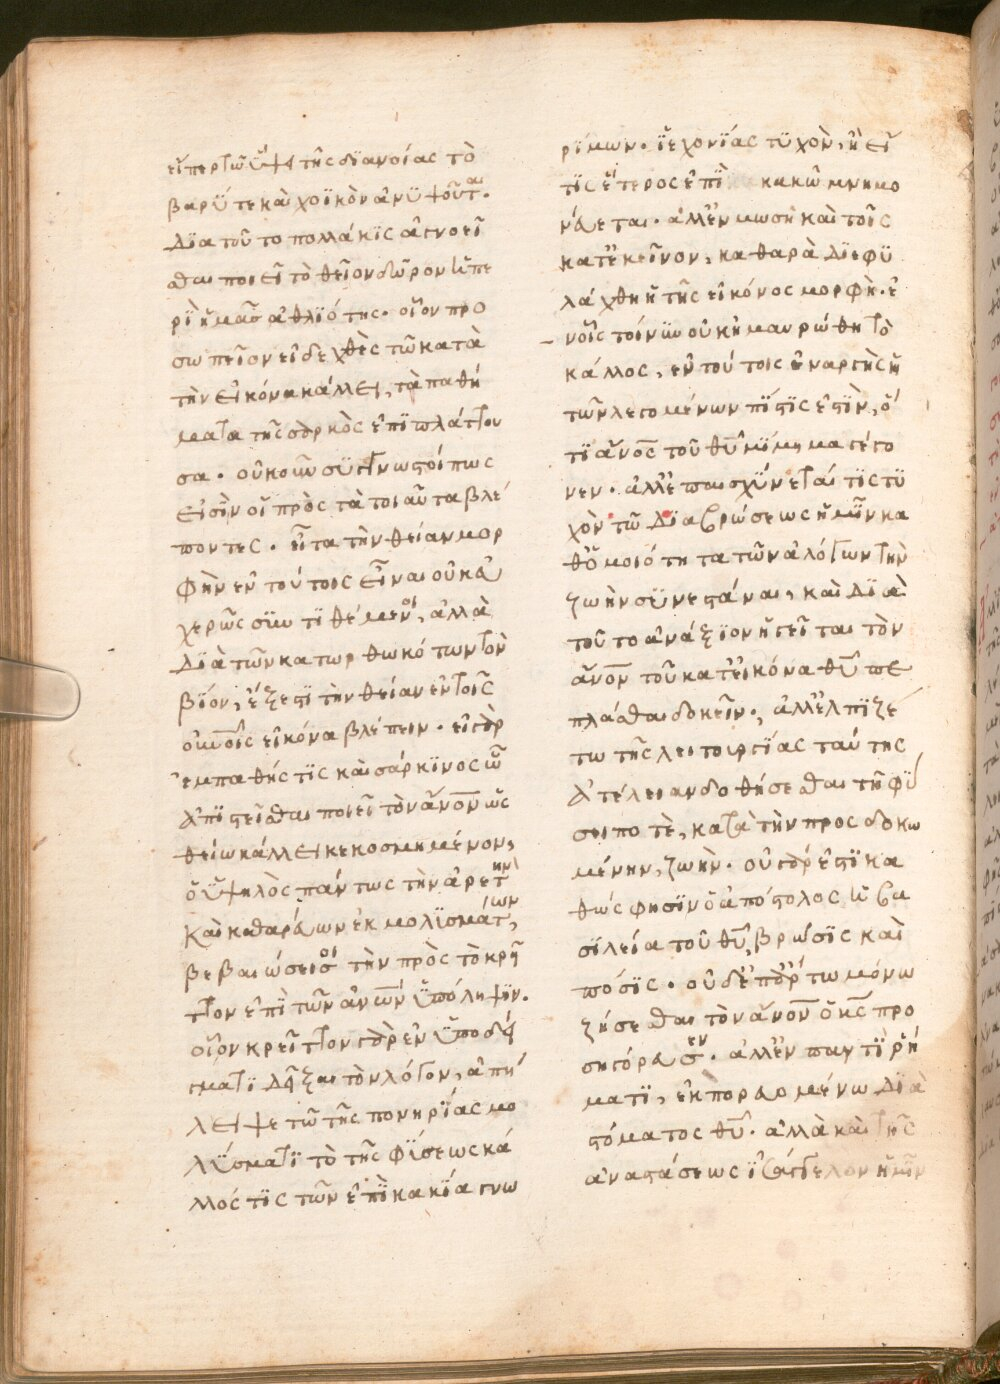 εἴπερ τῶ ὕψει τῆς διανοίας τὸ
βαρύ τε καὶ χοϊκὸν ἀνυψοῦται.
Διὰ τοῦτο πολλάκις ἀγνοεῖ
σθαι ποιεῖ τὸ θεῖον δῶρον ἡ πε
ρὶ ἡμᾶς ἀθλιότης. οἷον προ
σωπεῖον εἰδεχθὲς τῶ κατὰ
τὴν εἰκόνα κάλλει, τὰ παθή
ματα τῆς σαρκὸς ἐπιπλάττου
σα. οὐκοῦν συγγνωστοί πως
εἰσὶν οἱ πρὸς τὰ τοιαῦτα βλέ
ποντες. εἶτα τὴν θείαν μορ
φὴν ἐν τούτοις εἶναι οὐκ εὐ
χερῶς συντιθέμενοι, ἀλλὰ
Διὰ τῶν κατωρθωκότων τὸν
βίον, ἔξεστι τὴν θείαν ἐν τοῖς
ἀνοις εἰκόνα βλέπειν. εἰ γὰρ
ἐμπαθής τις καὶ σάρκινος ὢν
ἀπιστεῖσθαι ποιεῖ τὸν ἄνον ὡς
θείω κάλλει κεκοσμημένον,
ὁ ὑψηλὸς πάντως τὴν ἀρετὴν
καὶ καθαρεύων ἐκ μολυσμάτων,
βεβαιώσει σοι τὴν πρὸς τὸ κρεῖ
ττον ἐπὶ τῶν ἀνων ὑπόληψιν.
οἷον κρεῖττον γὰρ ἐν ὑποδεί
γματι δεῖξαι τὸν λόγον, ἀπή
λειψε τῶ τῆς πονηρίας μο
λύσματι τὸ τῆς φύσεως κά
λλός τις τῶν ἐπὶ κακία γνω
ρίμων. ἰεχονίας τυχὸν, ἢ εἴ
τις ἕτερος ἐπὶ κακῶ μνημο
νεύεται. ἀλλ' ἐν μωσῆ καὶ τοῖς
κατ' ἐκεῖνον, καθαρὰ διεφυ
λάχθη ἡ τῆς εἰκόνος μορφὴ. ἐ
ν οἷς τοίνυν οὐκ ἠμαυρώθη τὸ
κάλλος, ἐν τούτοις ἐναργὴς ἡ
τῶν λεγομένων πίστις ἐστὶν, ὅ
τι ἄνος τοῦ θυ μίμημα γέγο
νεν. ἀλλ' ἐπαισχύνεταί τις τυ
χὸν τῶ διὰ βρώσεως ἡμῖν κα
θ' ὁμοιότητα τῶν ἀλόγων τὴν
ζωὴν συνεστάναι, καὶ διὰ
τοῦτο ἀνάξιον ἡγεῖται τὸν
ἄνον τοῦ κατ' εἰκόνα θυ πε
πλάσθαι δοκεῖν., ἀλλ' ἐλπιζέ
τω τῆς λειτουργίας ταύτης
ἀτέλειαν δοθήσεσθαι τῆ φύ
σει ποτὲ, κατὰ τὴν προσδοκω
μένην, ζωὴν. οὐ γάρ ἐστι κα
θώς φησιν ὁ ἀπόστολος ἡ βα
σιλεία τοῦ θυ, βρῶσις καὶ
πόσις. οὐδ' ἐπ' ἄρτω μόνω
ζήσεσθαι τὸν ἄνον ὁ κς προ
σηγόρευσεν. ἀλλ' ἐν παντὶ ῥή
ματι, ἐκπορευομένω διὰ
στόματος θυ. ἀλλὰ καὶ τῆς
ἀναστάσεως ἰσάγγελον ἡμῖν